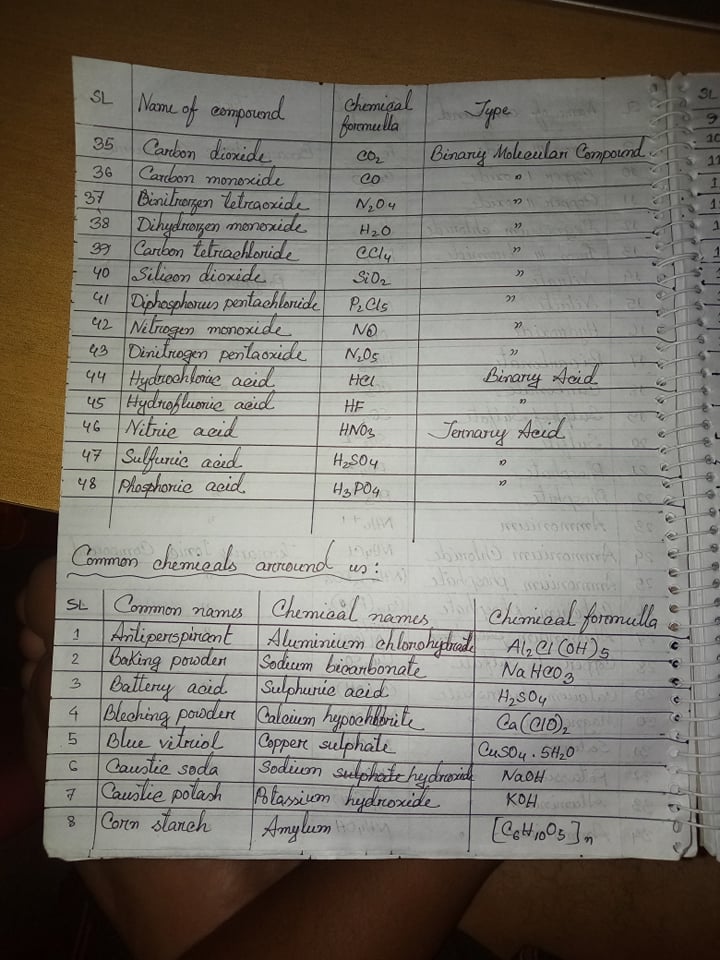 SL Name of compound Chemical formulla Type
35 Carbon dioxide CO2 Binary Molecular Compound
36 Carbon monoxide CO "
37 Binitrogen tetraoxide N2O4 "
38 Dihydrogen monoxide H2O "
39 Carbon tetrachloride CCl4 "
40 Silicon dioxide SiO2 "
41 Diphosphorus pentachloride P2Cl5 "
42 Nitrogen monoxide NO "
43 Dinitrogen pentaoxide N2O5 "
44 Hydrochloric acid HCl Binary Acid
45 Hydrofluoric acid HF "
46 Nitric acid HNO3 Ternary Acid
47 Sulfuric acid H2SO4 "
48 Phosphoric acid H3PO4 "
Common chemicals arround us:
SL Common names Chemical names Chemical formulla
1 Antiperspirant Aluminium chlorohydrate Al2Cl(OH)5
2 Baking powder Sodium bicarbonate NaHCO3
3 Battery acid Sulphuric acid H2SO4
4 Bleching powder Calcium hypochlorite Ca(ClO)2
5 Blue vitriol Copper sulphate CuSO4.5H2O
6 Caustic soda Sodium sulphate hydroxide NaOH
7 Caustic potash Potassium hydroxide KOH
8 Corn starch Amylum [C6H10O5]n
SL
9
10
11